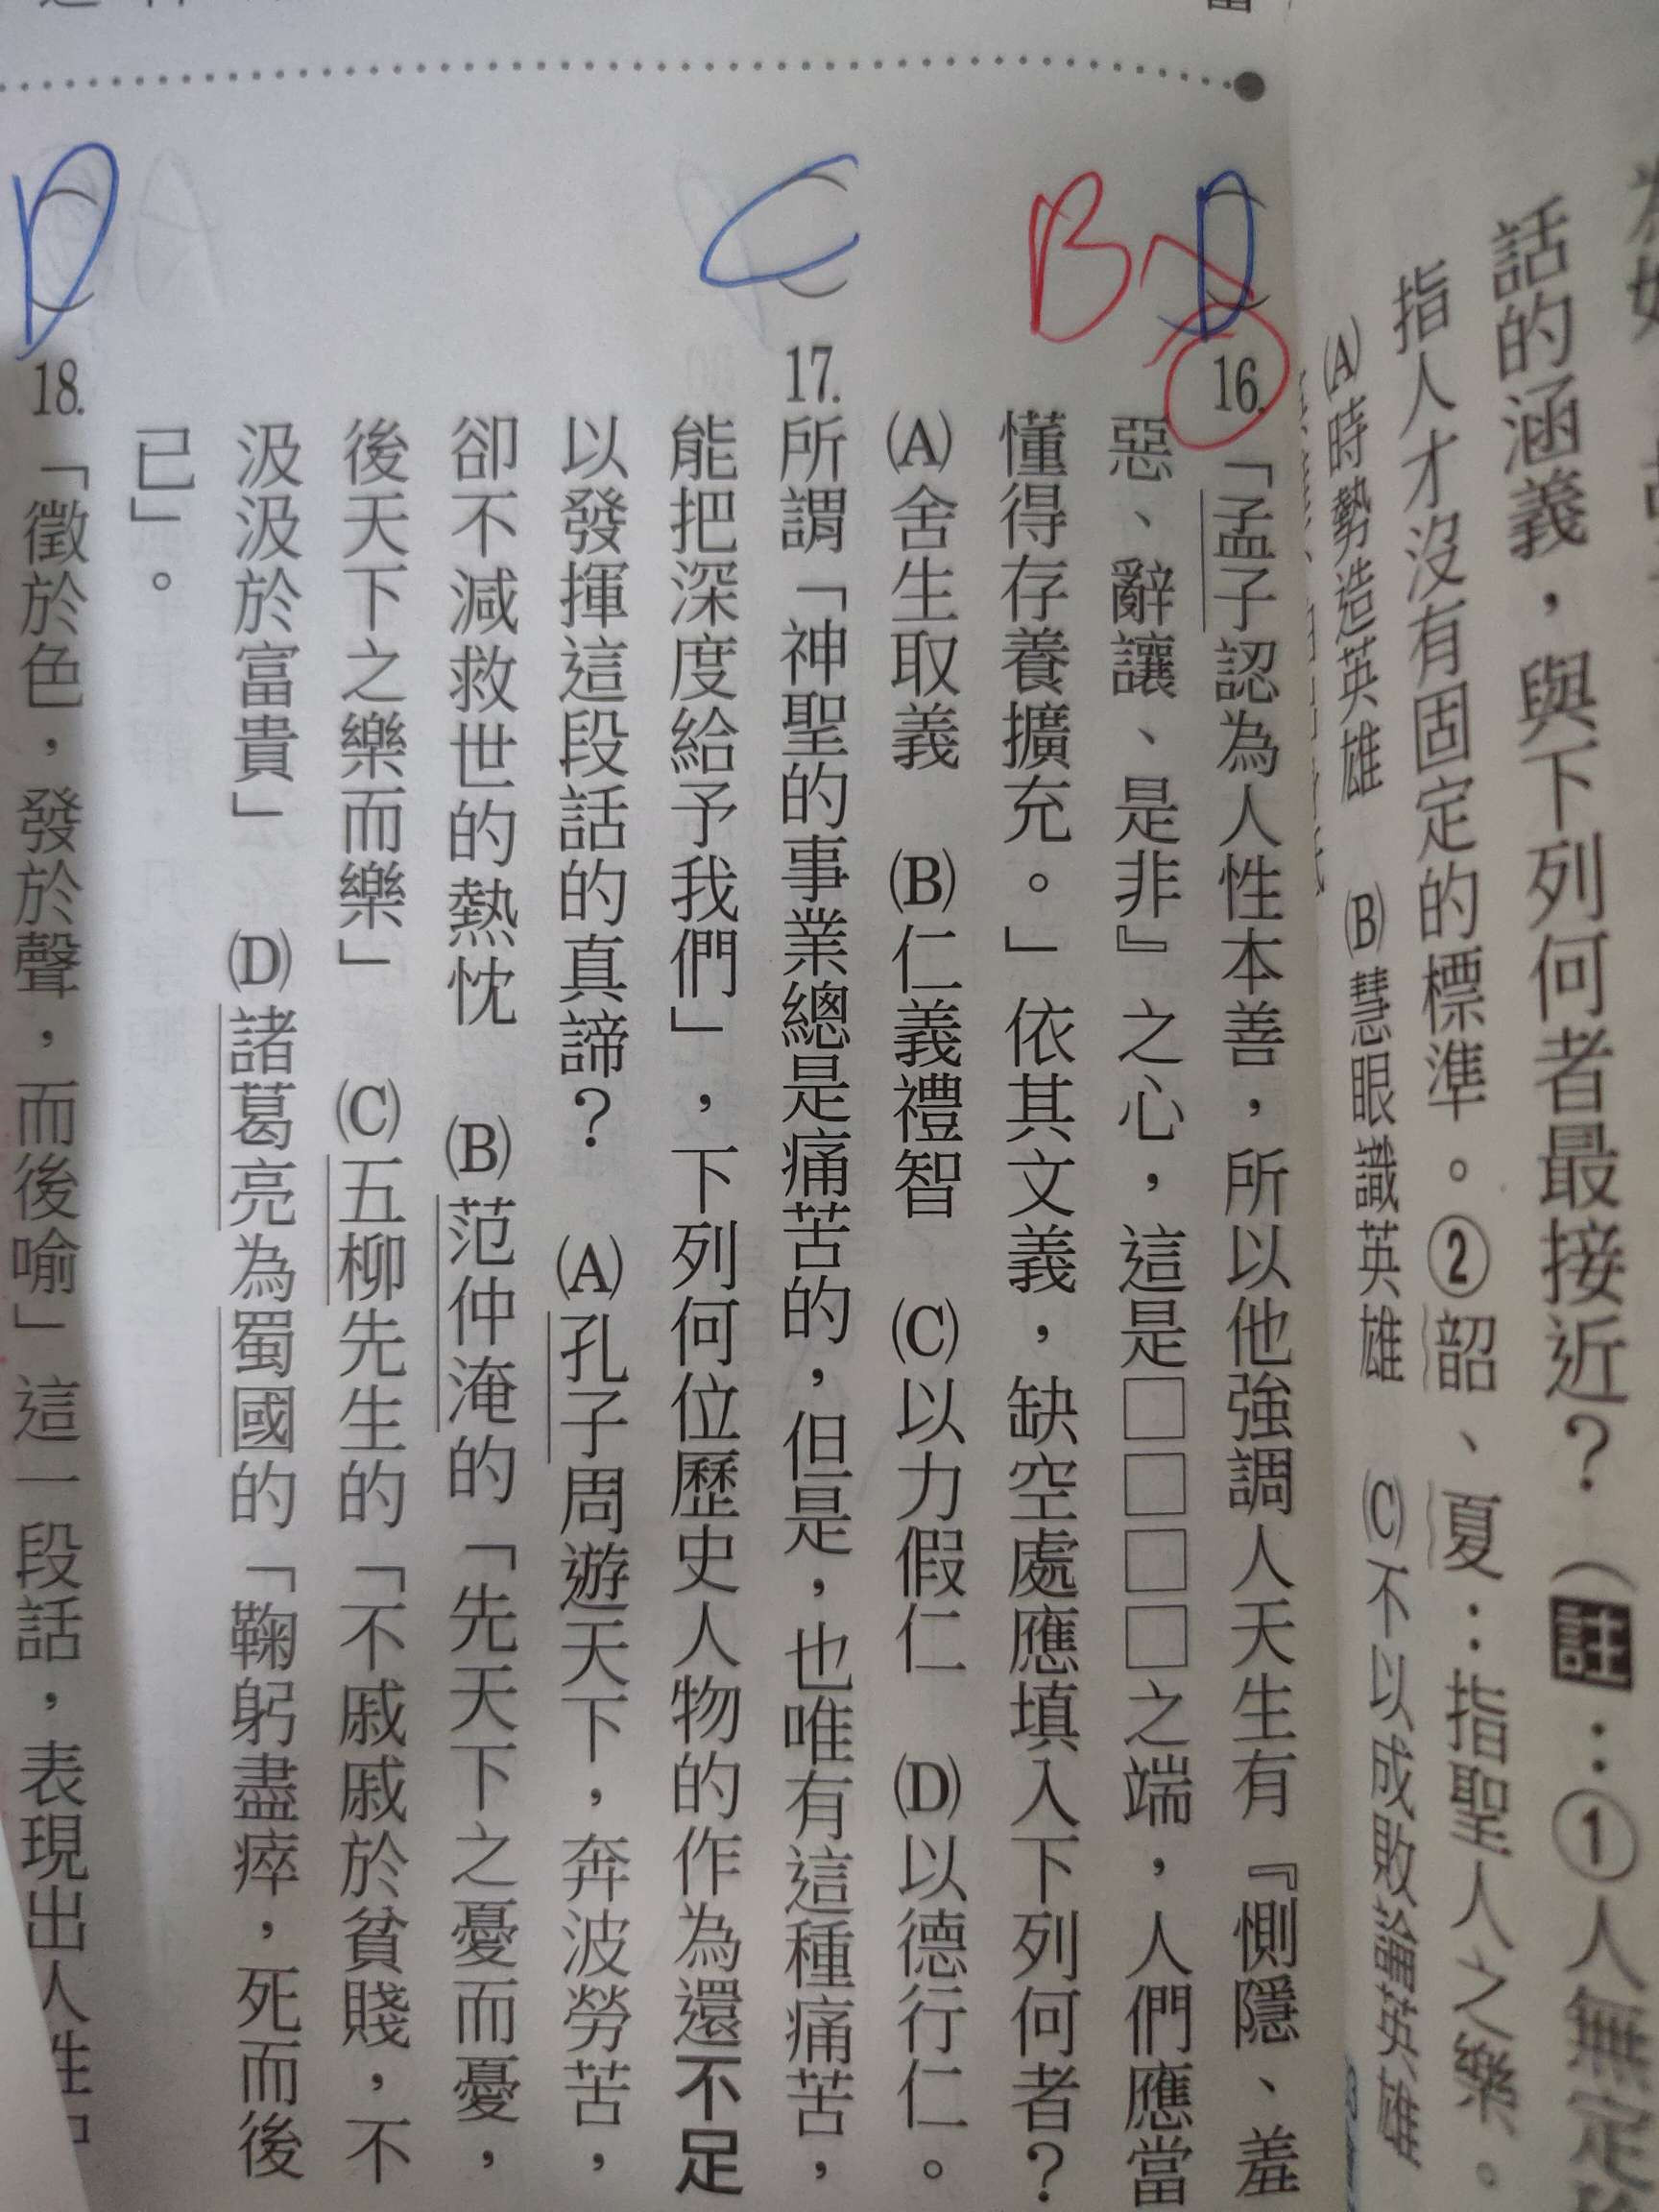 話的涵義，與下列何者最接近？（註：①人無定
指人才沒有固定的標準。②韶、夏：指聖人之樂。
(A)時勢造英雄　(B)慧眼識英雄　(C)不以成敗論英雄
D
B
16.「孟子認為人性本善，所以他強調人天生有『惻隱、羞
惡、辭讓、是非』之心，這是□□□□之端，人們應當
懂得存養擴充。」依其文義，缺空處應填入下列何者？
(A)舍生取義　(B)仁義禮智　(C)以力假仁　(D)以德行仁。
C
17.所謂「神聖的事業總是痛苦的，但是，也唯有這種痛苦，
能把深度給予我們」，下列何位歷史人物的作為還不足
以發揮這段話的真諦？　(A)孔子周遊天下，奔波勞苦，
卻不減救世的熱忱　(B)范仲淹的「先天下之憂而憂，
後天下之樂而樂」　(C)五柳先生的「不戚戚於貧賤，不
汲汲於富貴」　(D)諸葛亮為蜀國的「鞠躬盡瘁，死而後
已」。
D
18.「徵於色，發於聲，而後喻」這一段話，表現出人性